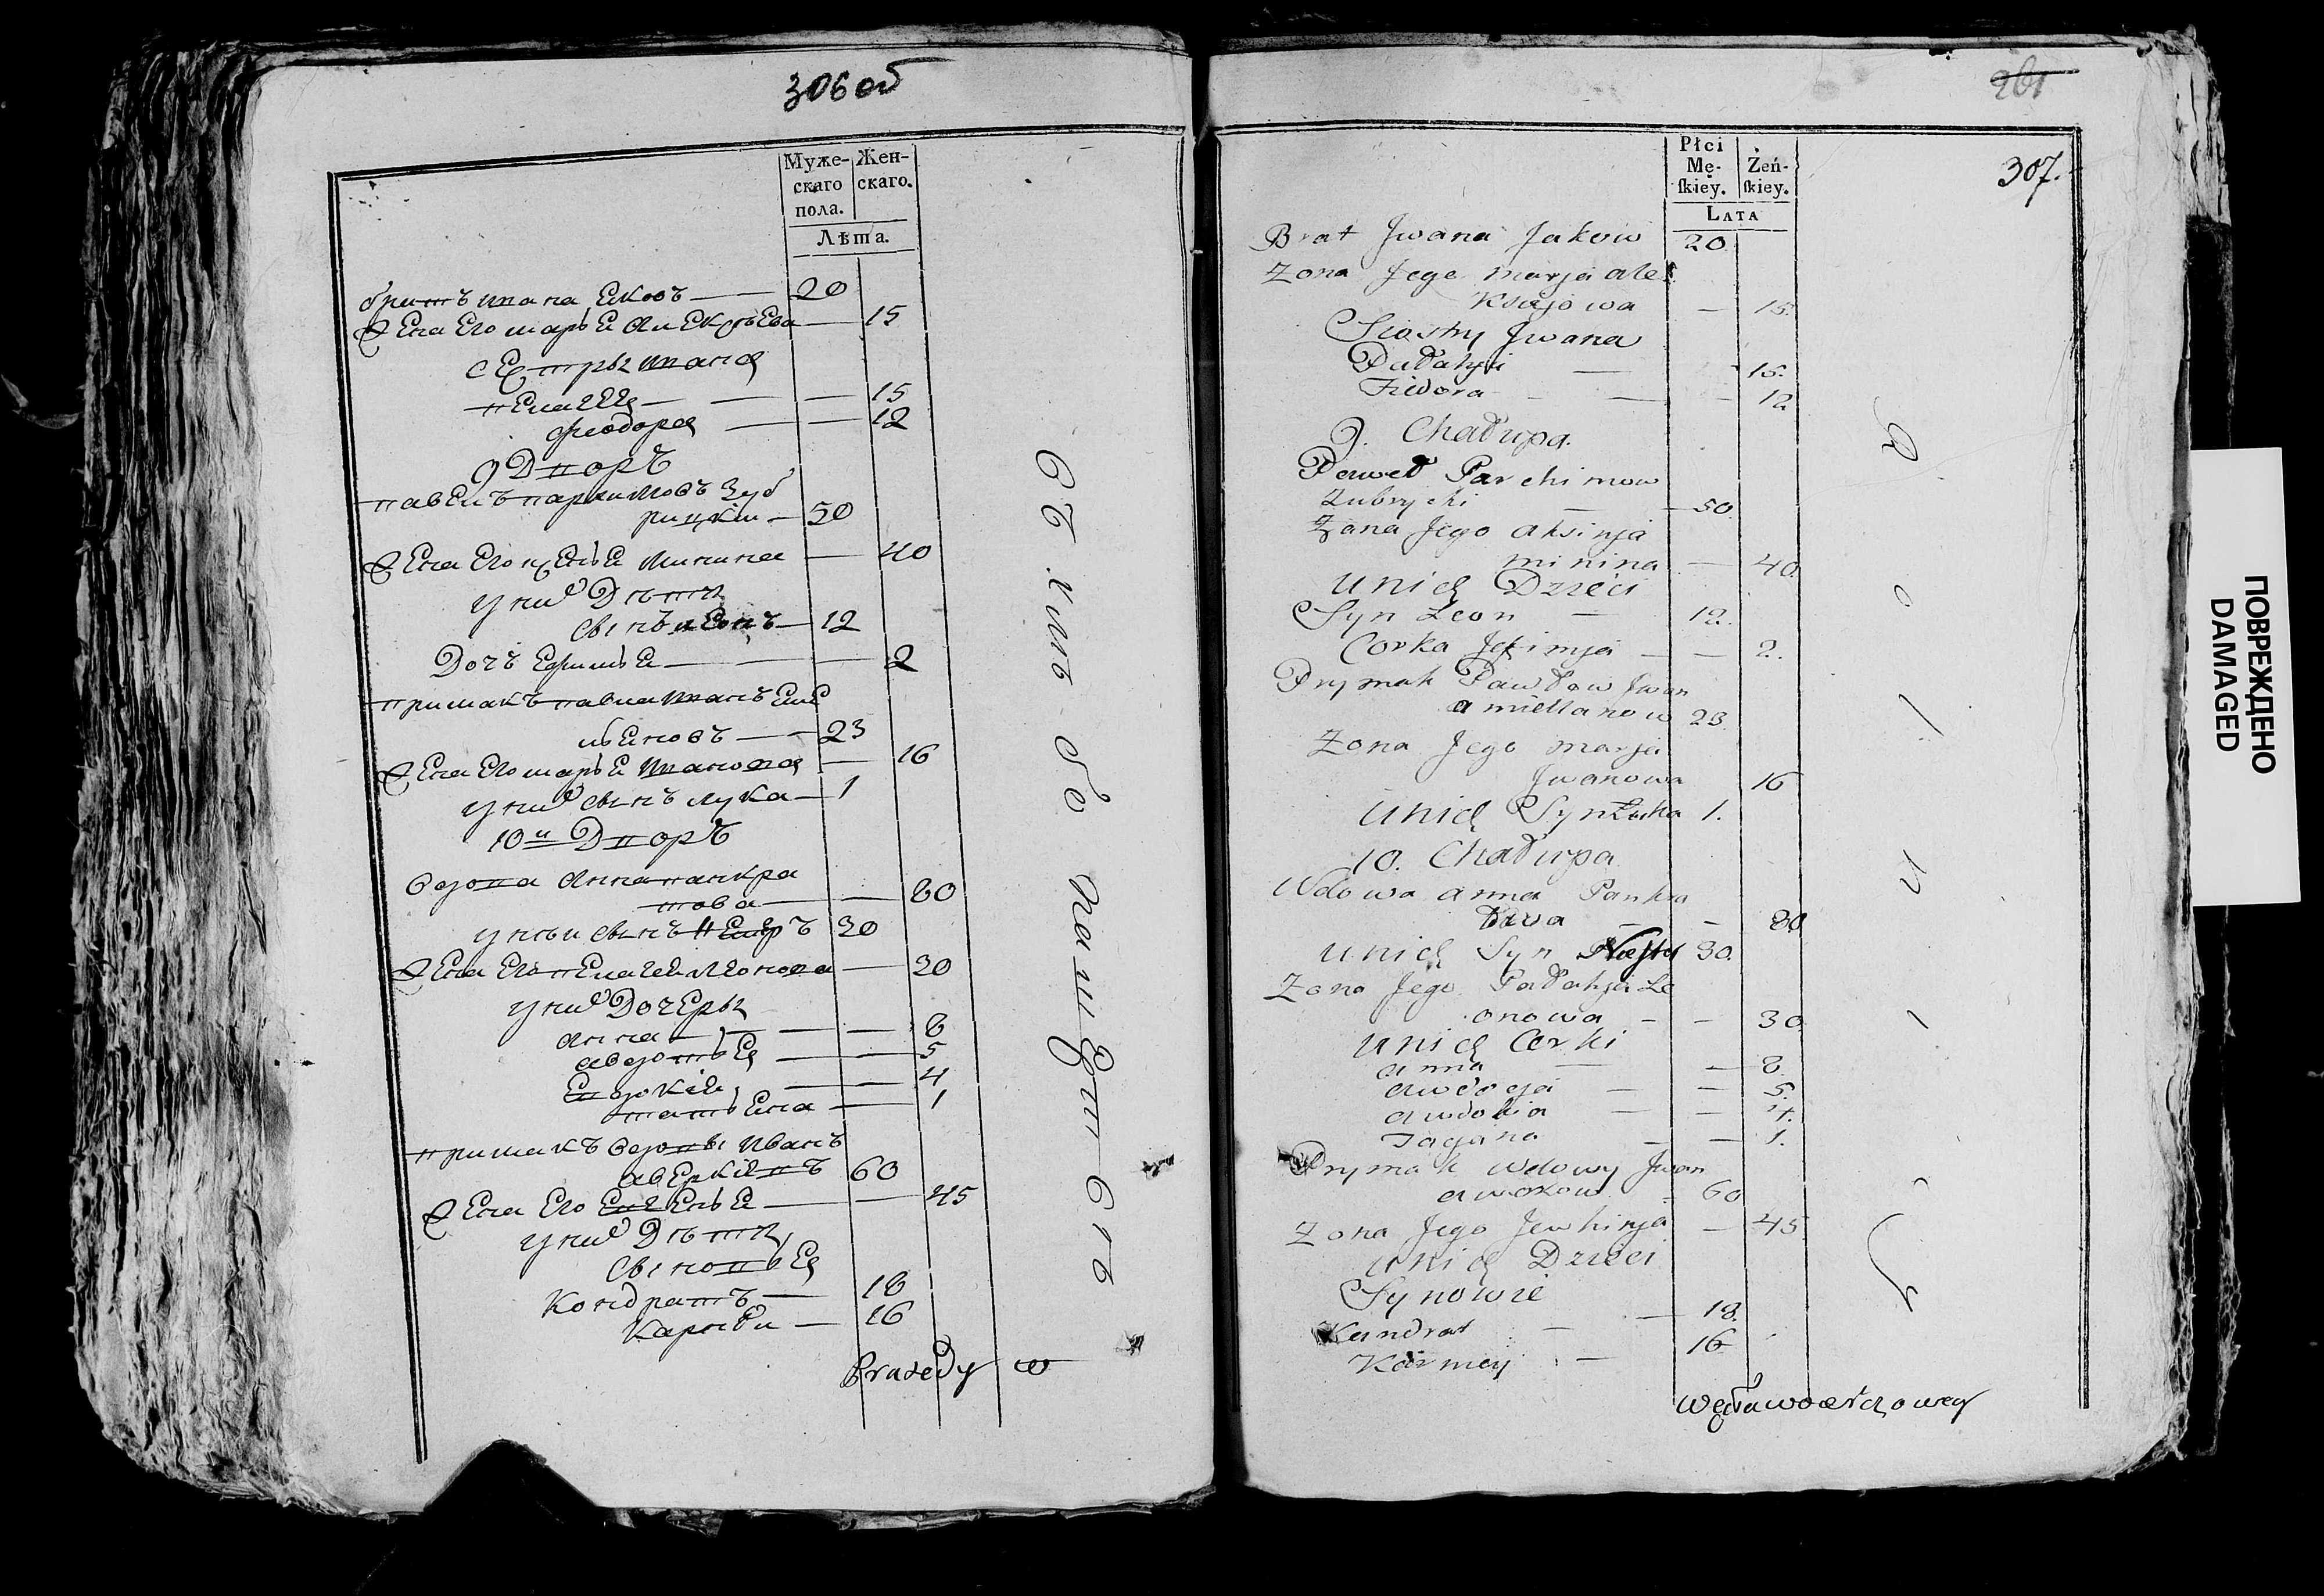 306 об
Муже-
скаго
пола.
Жен-
скаго.
Лѣта.
братъ ивана Яковъ — 20
жена Его марья Алексѣева — 15
сестры ивана
пелагея — 15
феодора — 12
9 Дворъ
павелъ пархимовъ Зуб
рицкии — 50
жена Его ксенья минина — 40
у них Дѣти
сынъ леонъ — 12
Дочъ Ефимья — 2
примакъ павла иванъ Еме
льяновъ — 23
жена Его марья иванова — 16
у них сынъ лука — 1
10й Дворъ
вдова Анна панкра
това — 80
у нѣи сынъ Несцеръ 30
жена Его пелагея леонова — 30
у них Дочеры
Анна — 8
авдотья — 5
Евдокия — 4
татьяна — 1
примакъ вдовы иванъ
аверкиевъ 60
жена Его Евгенья — 45
у них Дѣти
сыновья
Кондратъ — 18
Карнѣи — 16
въ кимъ об
Prazedy w
261
307.
Płci
Mę-
ſkiey.
Żeń-
ſkiey.
Lata
Brat Jwana Jakow 20.
Zona Jego marja ale
Ksiejowa — 15.
Siostry Jwana
Pałahja — 15.
Fiedora — 12
9. Chałupa.
Paweł Parchimow
Zubrycki — 50.
Zona Jego aksinja
minina — 40.
U nich Dzieci
Syn Leon — 12.
Corka Jefimja — 2.
Prymak Pawłow Jwan
amiellanow 23.
Zona Jego marja
Jwanowa 16
U nich Syn Łuka 1.
10. Chałupa
Wdowa anna Pankra
towa — 80
U nich Syn Nester 30.
Zona Jego Pałahja Le
onowa — 30
U nich Corki
anna — 8.
awdocja — 5.
awdokia — 4.
Taćjana — 1.
Prymak Wdowy Jwan
awerkow 60
Zona Jego Jewhinja — 45
U nich Dzieci
Synowie
Kandrat — 18.
Karniey — 16
ПОВРЕЖДЕНО
DAMAGED